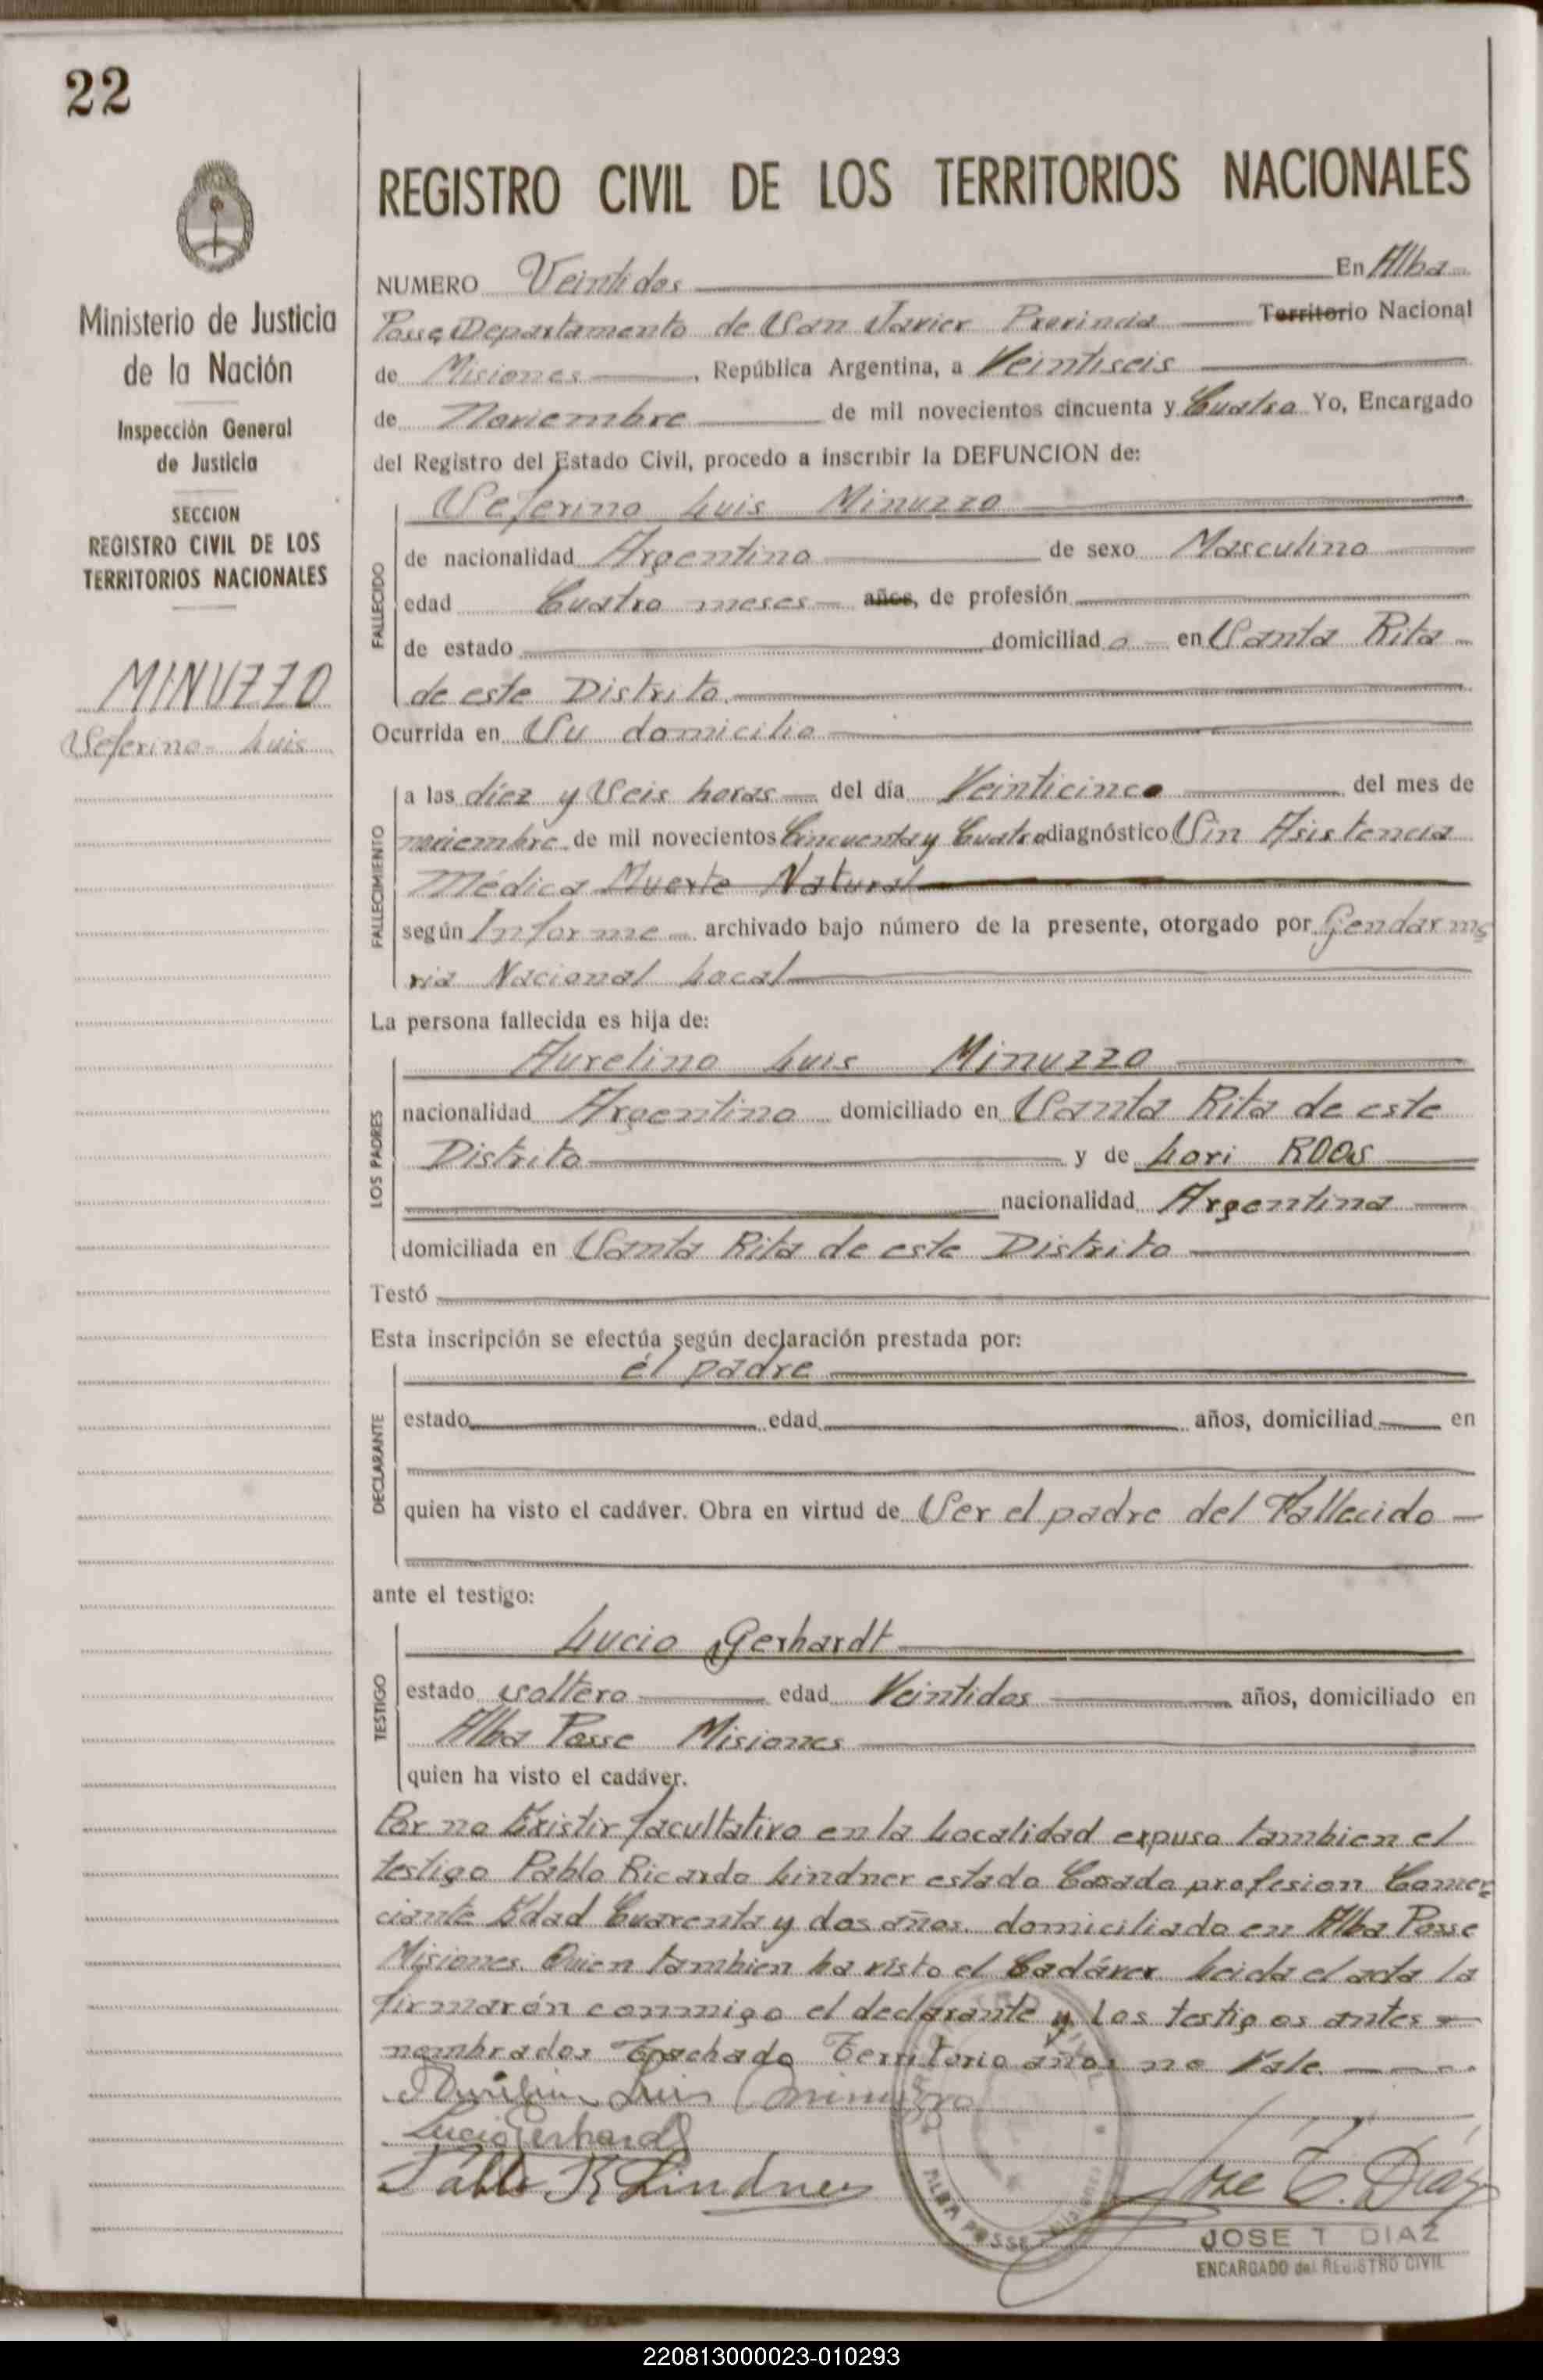 22
REGISTRO CIVIL DE LOS TERRITORIOS NACIONALES
Ministerio de Justicia
de la Nación
Inspección General
de Justicia
SECCION
REGISTRO CIVIL DE LOS
TERRITORIOS NACIONALES
MINUZZO
Seferino Luis
NUMERO Veintidos En Alba
Posse Departamento de San Javier Provincia Territorio Nacional
de Misiones, República Argentina, a Veintiseis
de Noviembre de mil novecientos cincuenta y Cuatro Yo, Encargado
del Registro del Estado Civil, procedo a inscribir la DEFUNCION de:
Seferino Luis Minuzzo
FALLECIDO
de nacionalidad Argentino de sexo Masculino
edad Cuatro meses años, de profesión
de estado domiciliado en Santa Rita
de este Distrito
Ocurrida en Su domicilio
FALLECIMIENTO
a las diez y Seis horas del día Veinticinco del mes de
noviembre de mil novecientos Cincuenta y Cuatro diagnóstico Sin Asistencia
Médica Muerte Natural
según Informe archivado bajo número de la presente, otorgado por Gendarme
ria Nacional Local
La persona fallecida es hija de:
LOS PADRES
Aurelino Luis Minuzzo
nacionalidad Argentino domiciliado en Santa Rita de este
Distrito y de Lori ROOS
nacionalidad Argentina
domiciliada en Santa Rita de este Distrito
Testó
Esta inscripción se efectúa según declaración prestada por:
DECLARANTE
él padre
estado edad años, domiciliad en
quien ha visto el cadáver. Obra en virtud de Ser el padre del Fallecido
ante el testigo:
TESTIGO
Lucio Gerhardt
estado soltero edad Veintidos años, domiciliado en
Alba Posse Misiones
quien ha visto el cadáver.
Por no Existir facultativo en la Localidad expuso tambien el
testigo Pablo Ricardo Lindner estado Casado profesion Comer=
ciante Edad Cuarenta y dos años. domiciliado en Alba Posse
Misiones. Quien tambien ha visto el Cadáver Leida el acta la
firmarón conmigo el declarante y Los testigos antes =
nombrados Tachado Territorio años no Vale.
Aurelino Luis Minuzzo
Lucio Gerhardt
Pablo R Lindner
Jose T. Díaz
ALBA POSSE
JOSE T DIAZ
ENCARGADO del REGISTRO CIVIL
220813000023-010293